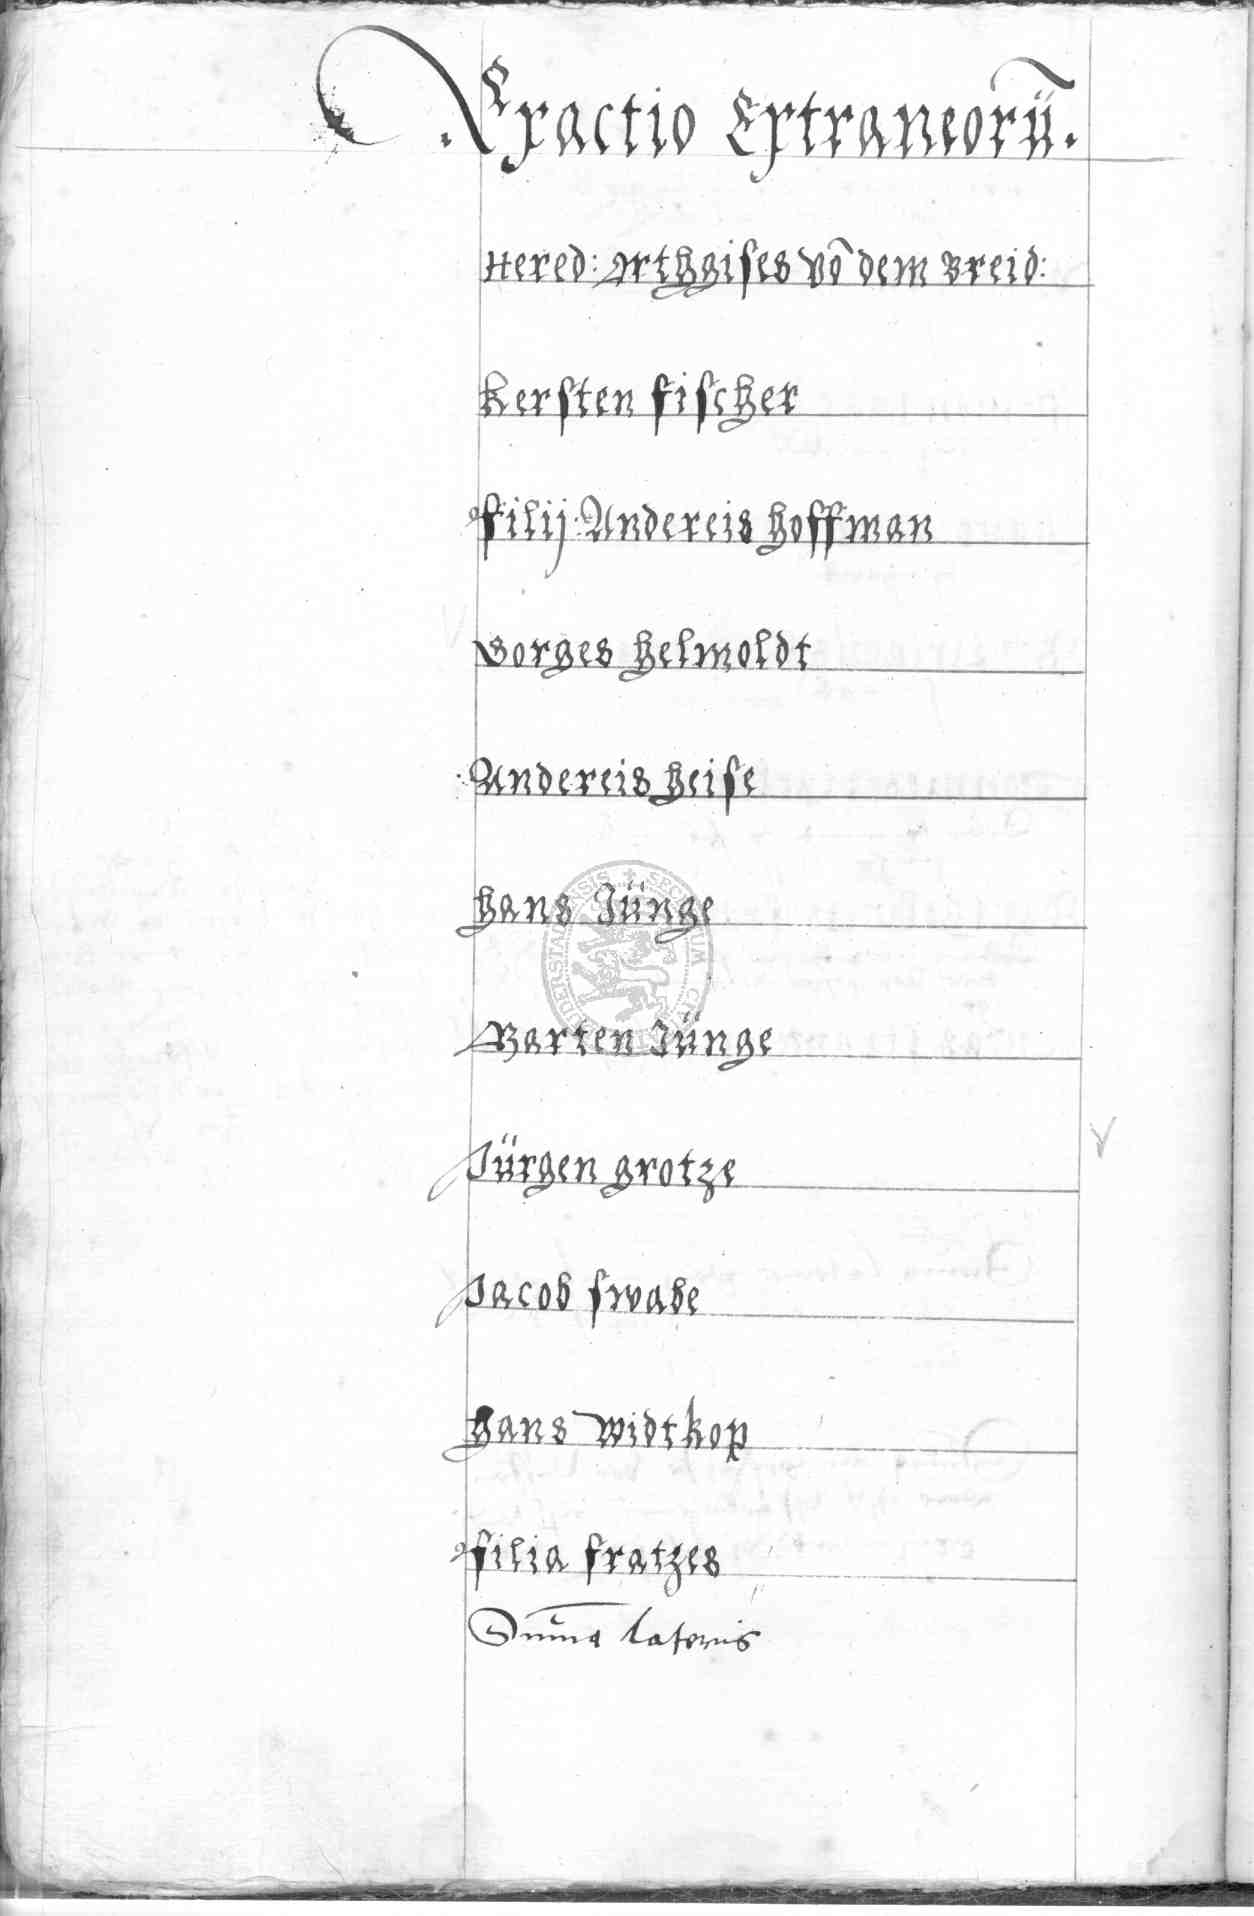 Exactio Extraneorũ.
Hered: Arthgises võ dem Breid:
Kersten fischer
filij: Andereis hoffman
Borges helmoldt
Andereis heise
hans Jünge
Barten Jünge
Jürgen grotze
Jacob swabe
hans widtkop
filia fratzes
Suma lateris